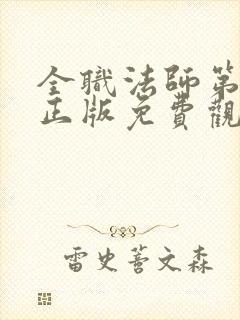 全職法師第
正版免費觀
雷史善文森